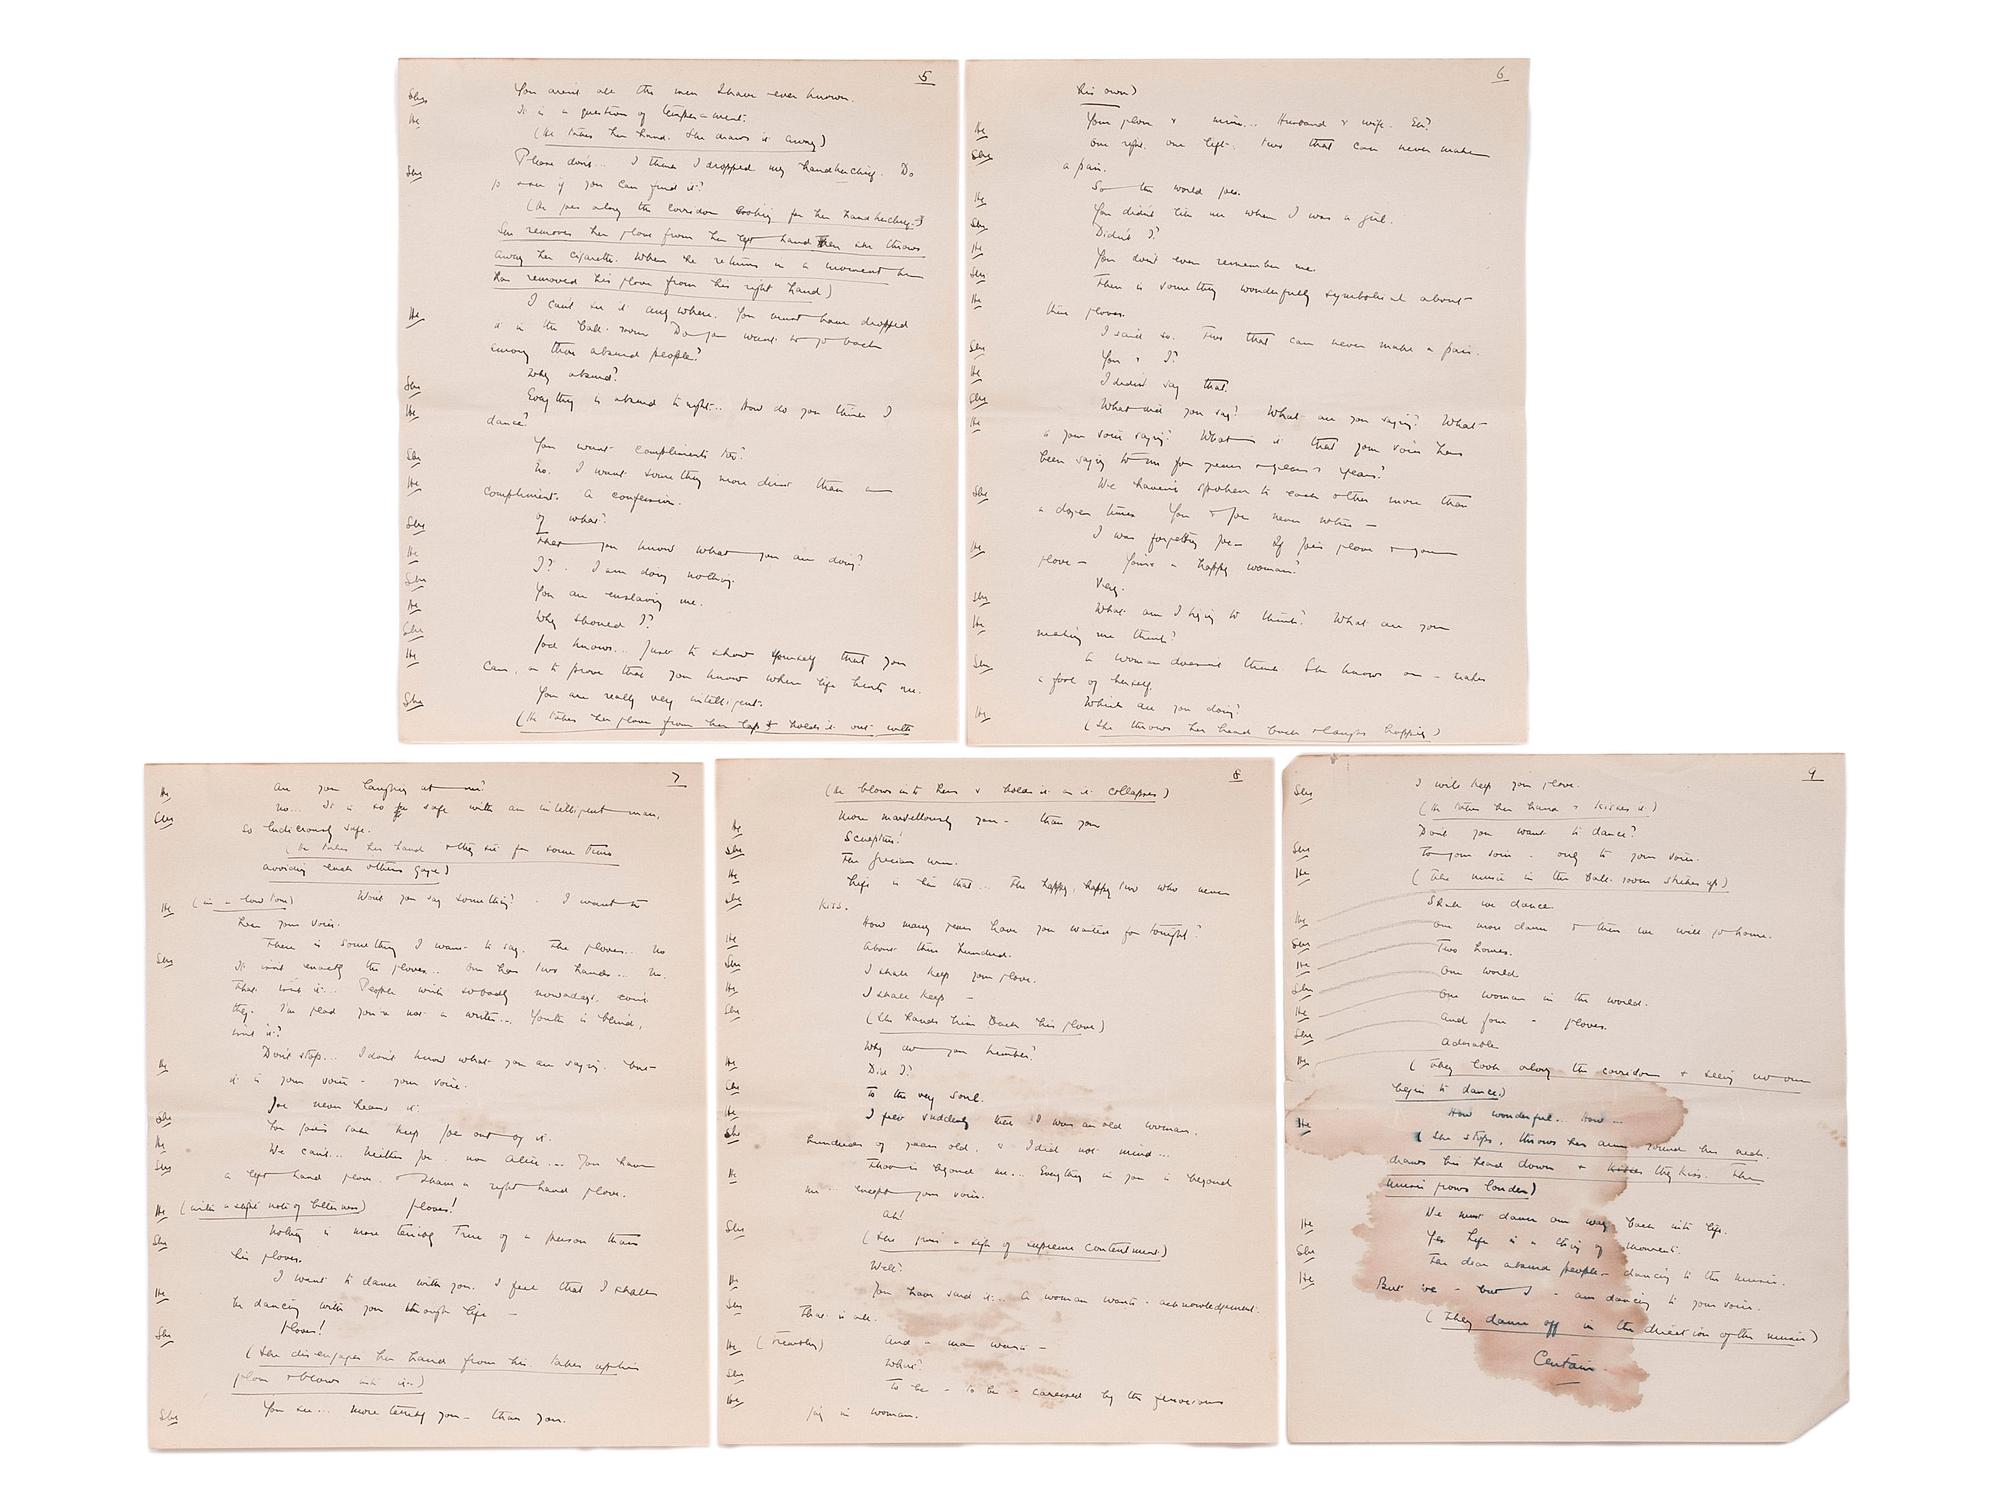 5
She You aren't all the men I have ever known.
He It is a question of temperament.
(He takes her hand. She draws it away)
She Please don't... I think I dropped my handkerchief. Do
go & see if you can find it?
(He goes along the corridor looking for her handkerchief.
She removes her glove from her left hand then she throws
away her cigarette. When he returns in a moment he
has removed his glove from his right hand)
He I can't see it anywhere. You must have dropped
it in the ball-room. Do you want to go back
among those absurd people?
She Why absurd?
He Everything is absurd tonight... How do you think I
dance?
She You want compliments too?
He No. I want something more direct than a
compliment. A confession.
She Of what?
He That you know what you are doing?
She I? I am doing nothing.
He You are enslaving me.
She Why should I?
He God knows... Just to show yourself that you
can, or to prove that you know where life hurts me.
She You are really very intelligent.
(He takes her glove from her lap & holds it out with
6
his own)
He Your glove & mine... Husband & wife. Eh?
She One right. One left. Two that can never make
a pair.
He So the world goes.
She You didn't like me when I was a girl.
He Didn't I?
She You don't even remember me.
He There is something wonderfully symbolical about
these gloves.
She I said so. Two that can never make a pair.
He You & I?
She I didn't say that.
He What did you say? What are you saying? What
is your voice saying? What is it that your voice has
been saying to me for years & years & years?
She We haven't spoken to each other more than
a dozen times. You & Joe never notice —
He I was forgetting Joe — If Joe's glove & your
glove — You're a happy woman?
She Very.
He What am I trying to think? What are you
making me think?
She A woman doesn't think. She knows or — makes
a fool of herself.
He Which are you doing?
(She throws her head back & laughs happily)
7
He Are you laughing at me?
She No... It is so safe with an intelligent man,
so ludicrously safe.
(He takes her hand & they sit for some time
avoiding each others gaze)
He (in a low tone) Won't you say something? I want to
hear your voice.
She There is something I want to say. The gloves... No
It isn't exactly the gloves... One has two hands... No.
That isn't it... People write so badly nowadays, don't
they. I'm glad you're not a writer... Youth is blind,
isn't it?
He Don't stop... I don't know what you are saying, but
it is your voice — your voice.
She Joe never hears it.
He For God's sake keep Joe out of it.
She We can't... Neither Joe nor Alice... You have
a left hand glove & I have a right hand glove.
He (with a slight note of bitterness) Gloves!
She Nothing is more terribly true of a person than
his gloves.
He I want to dance with you. I feel that I shall
be dancing with you through life —
She Gloves!
(She disengages her hand from his, takes up his
glove & blows into it)
She You see... more terribly you — than you.
8
(He blows into hers & holds it as it collapses)
He More marvellously you — than you
She Sculpture!
He The Grecian urn.
She Life is like that... The happy, happy two who never
kiss.
He How many years have you waited for tonight?
She About three hundred.
He I shall keep your glove.
She I shall keep —
(She hands him back his glove)
He Why do you tremble?
She Did I?
He To the very soul.
She I felt suddenly that I was an old woman,
hundreds of years old, & I did not mind...
He That is beyond me... Everything in you is beyond
me... except your voice.
She Ah!
(She gives a sigh of supreme contentment)
He Well?
She You have said it... A woman wants — acknowledgement.
That is all.
He (trembles) And a man wants —
She What?
He To be — to be — caressed by the ferocious
joy in woman.
9
She I will keep your glove.
(He takes her hand & kisses it)
She Don't you want to dance?
He To your voice — only to your voice.
(The music in the ball-room strikes up)
He Shall we dance
She One more dance & then we will go home.
He Two homes.
She One world
He One woman in the world.
She And four — gloves.
He Adorable
(They look along the corridor & seeing no one
begin to dance)
He How wonderful. How...
(She stops, throws her arms round his neck,
draws his head down & they kiss. The
music grows louder)
He We must dance our way back into life.
She Yes. Life is a thing of moment.
He The dear absurd people — dancing to the music.
But we — but I — am dancing to your voice.
(They dance off in the direction of the music)
Curtain.